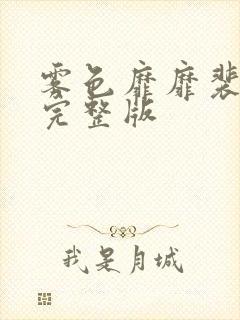 雾色靡靡裴
完整版
我是月城